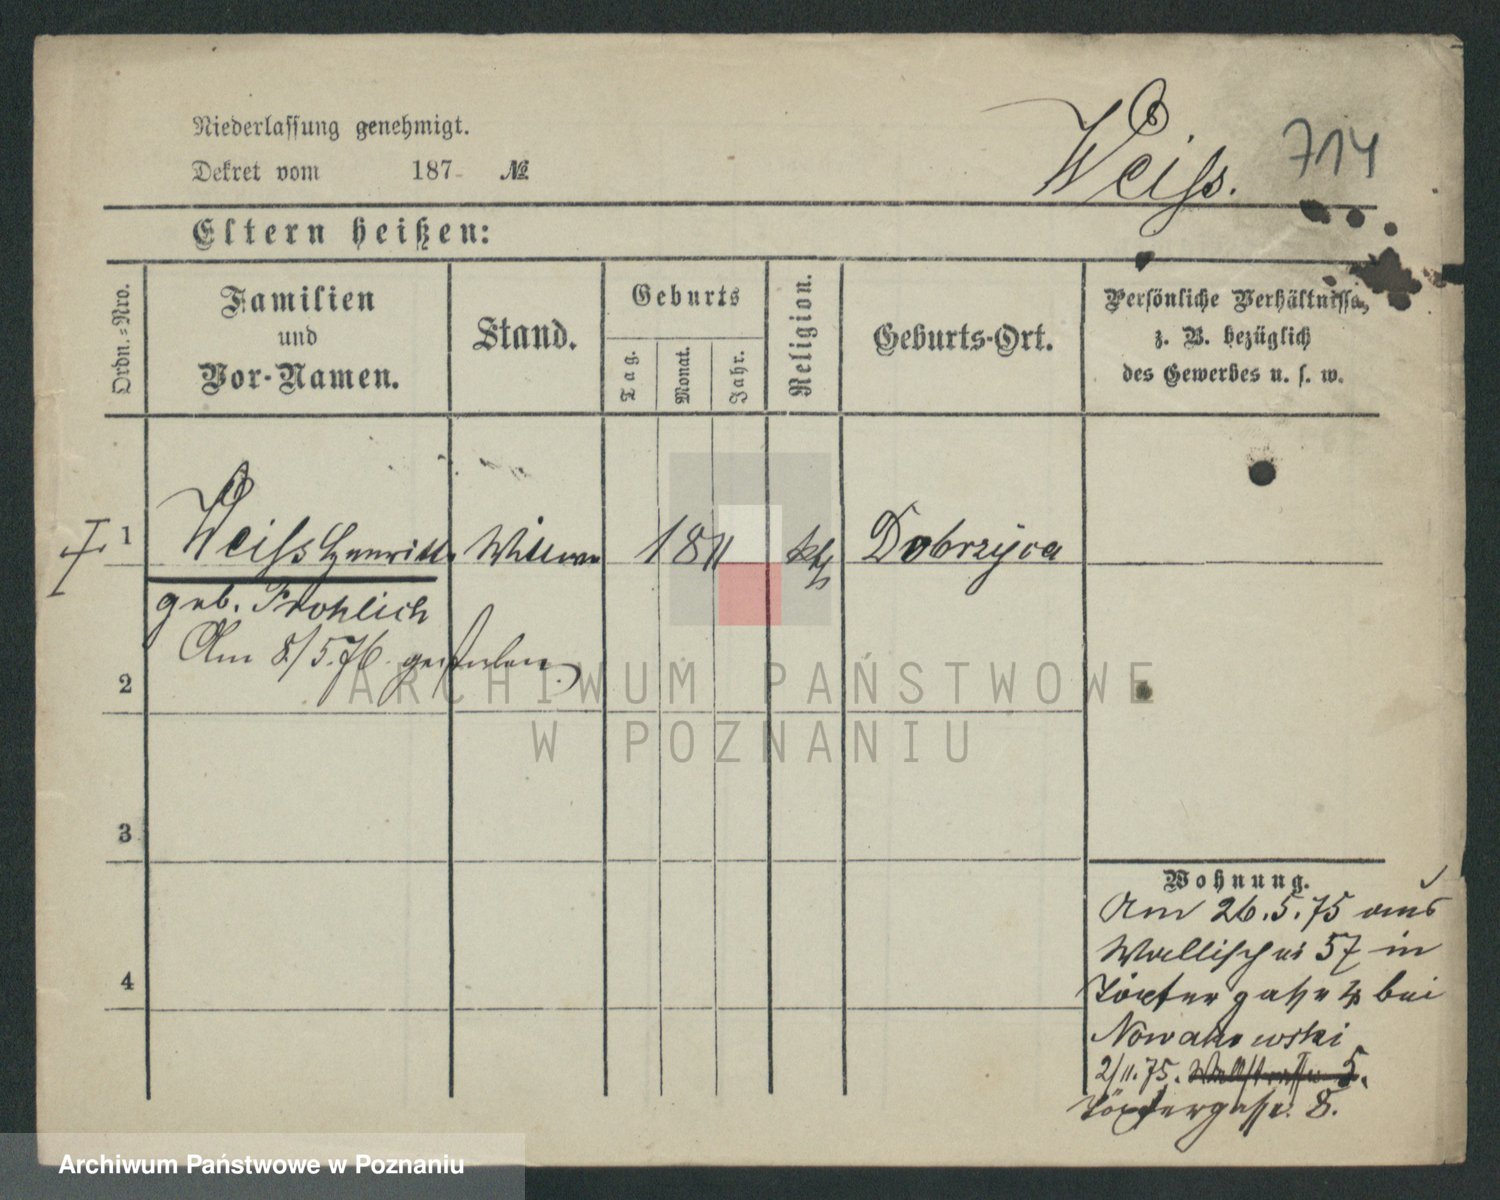 Niederlassung genehmigt.
Dekret vom 187 №
Weiss.
714
Eltern heißen:
Ordn.-Nro.
Familien
und
Vor-Namen.
Stand.
Geburts
Tag.
Monat.
Jahr.
Religion.
Geburts-Ort.
Persönliche Verhältnisse,
z. B. bezüglich
des Gewerbes u. s. w.
1 Weiss Henriette Wittwe 1811 kth Dobrzyca
geb. Fröhlich
Am 8/5.76. gestorben.
2
3
4
Wohnung.
Am 26.5.75 aus
Wallischei 57 in
Töpfergasse 4 bei
Nowakowski
2/11.75. Wallstrasse 5.
Töpfergasse 8.
ARCHIWUM PAŃSTWOWE
W POZNANIU
Archiwum Państwowe w Poznaniu